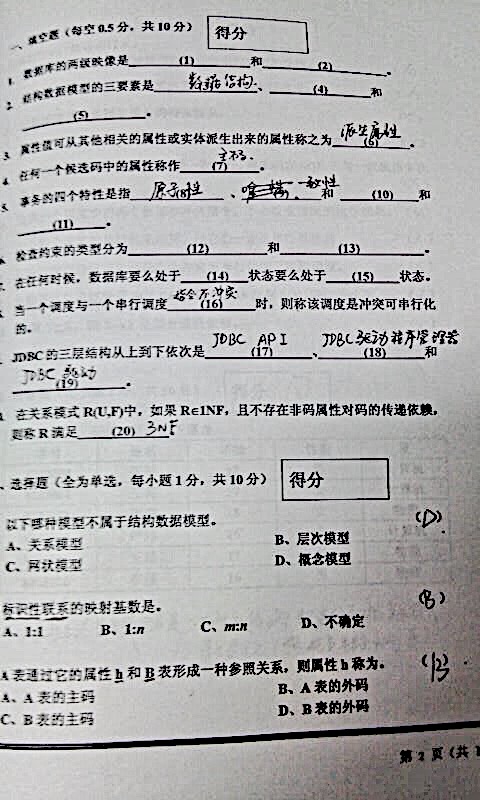 一、填空题（每空0.5分，共10分） 得分
1. 数据库的两级映像是 (1) 和 (2) 。
2. 结构数据模型的三要素是 数据结构、 (4) 和
(5) 。
3. 属性值可从其他相关的属性或实体派生出来的属性称之为 派生属性 (6) 。
4. 任何一个候选码中的属性称作 主不。 (7) 。
5. 事务的四个特性是指 原子(8)性 、 一致性 和 (10) 和
(11) 。
检查约束的类型分为 (12) 和 (13) 。
在任何时候，数据库要么处于 (14) 状态要么处于 (15) 状态。
当一个调度与一个串行调度 指令不冲突 (16) 时，则称该调度是冲突可串行化
的。
JDBC的三层结构从上到下依次是 JDBC API (17) 、 JDBC驱动程序管理器 (18) 和
JDBC驱动 (19) 。
在关系模式 R(U,F)中，如果 R∈1NF，且不存在非码属性对码的传递依赖，
则称 R 满足 (20) 3NF
、选择题（全为单选，每小题 1 分，共 10 分） 得分
以下哪种模型不属于结构数据模型。 (D)
A、关系模型 B、层次模型
C、网状模型 D、概念模型
标识性联系的映射基数是。 (B)
A、1:1 B、1:n C、m:n D、不确定
A 表通过它的属性 h 和 B 表形成一种参照关系，则属性 h 称为。 (B)
A、A 表的主码 B、A 表的外码
C、B 表的主码 D、B 表的外码
第 2 页（共 1